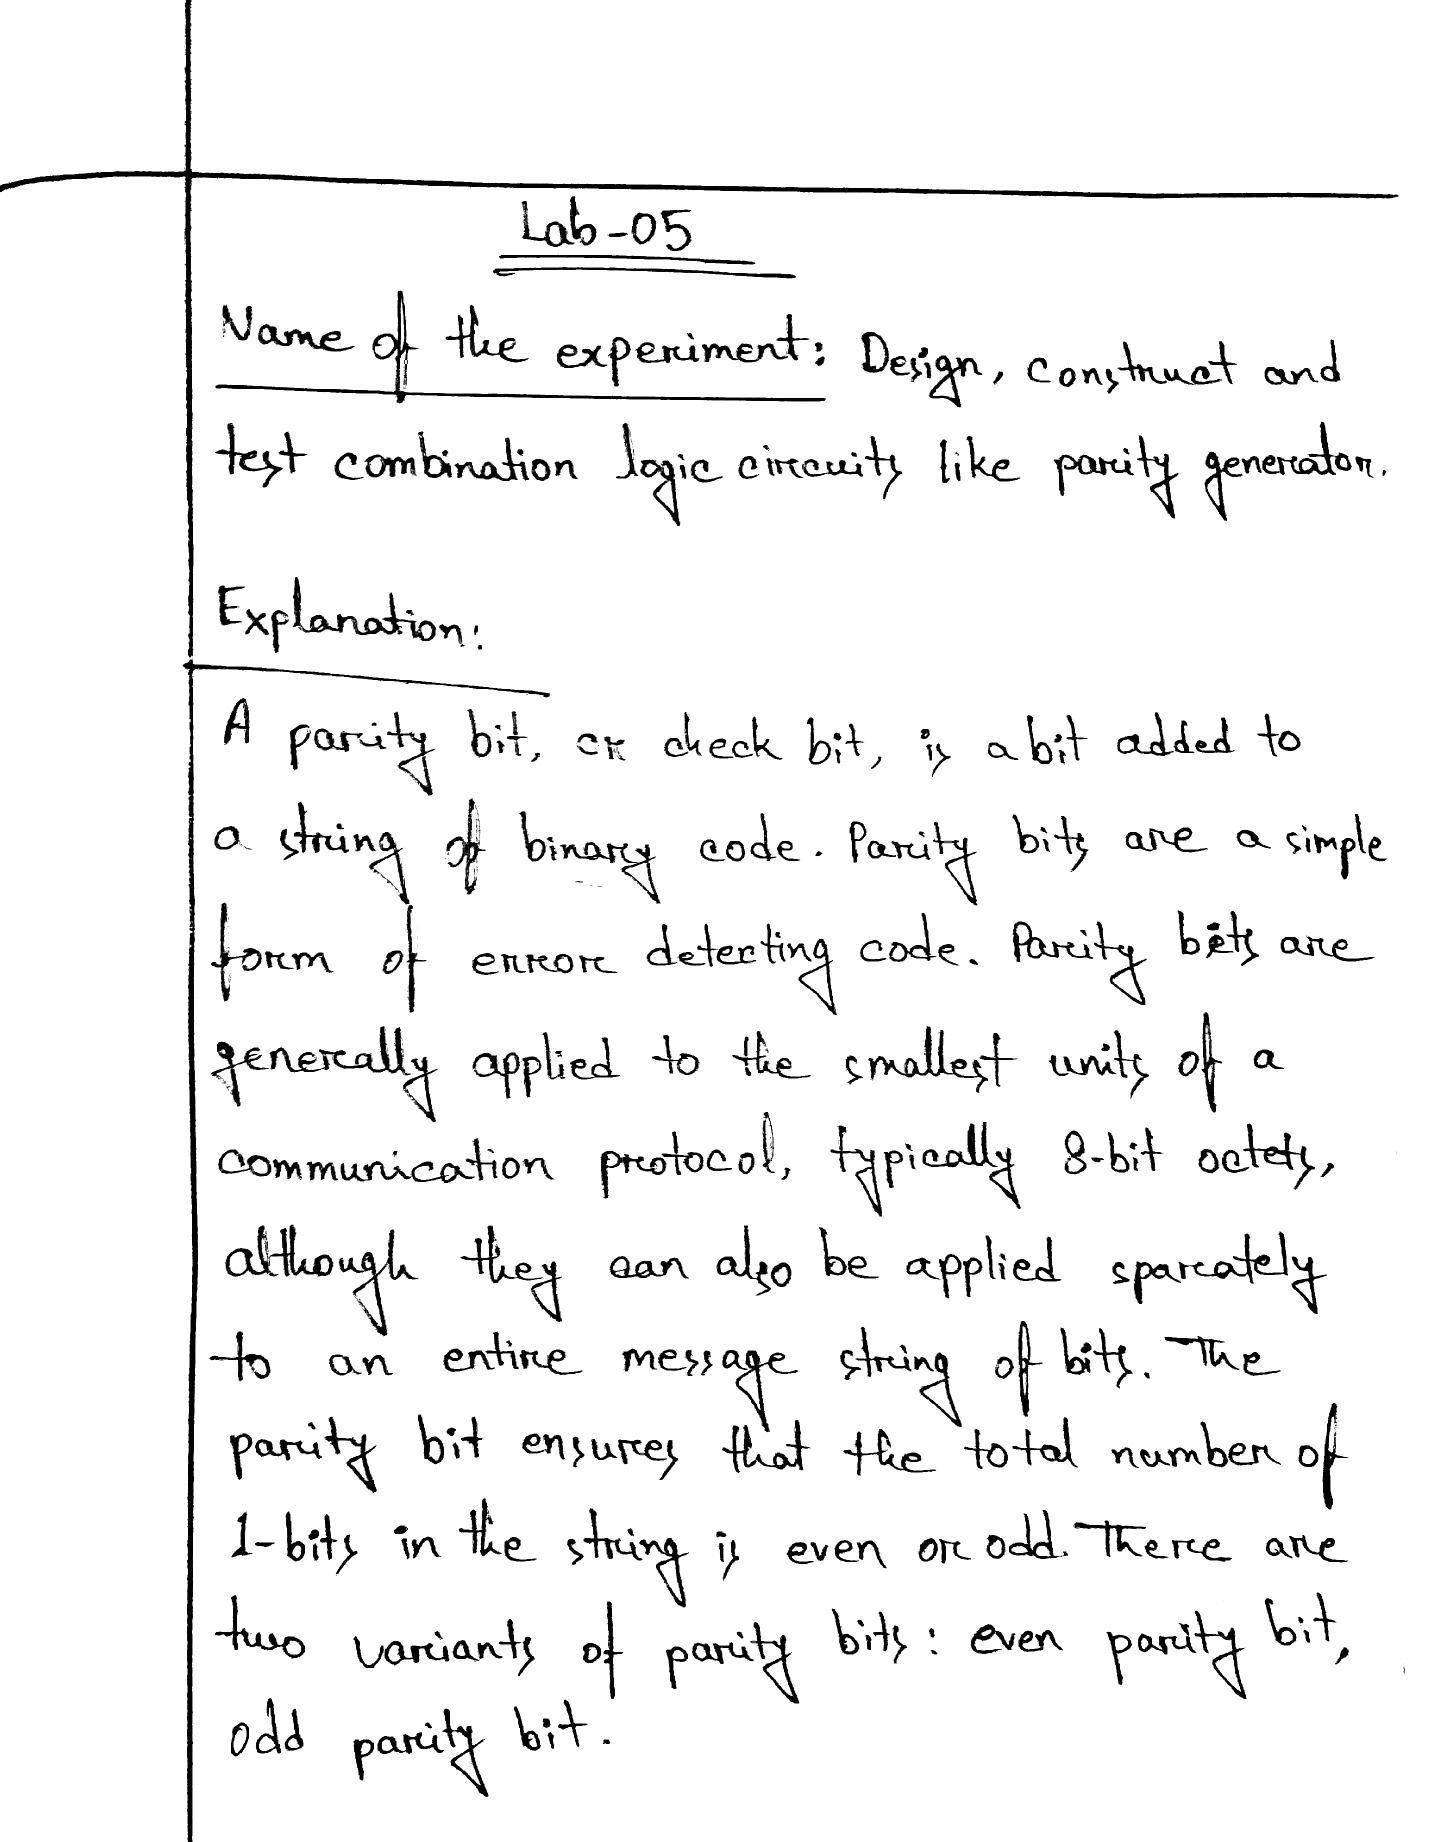 Lab-05
Name of the experiment: Design, construct and
test combination logic circuits like parity generator.
Explanation:
A parity bit, or check bit, is a bit added to
a string of binary code. Parity bits are a simple
form of error detecting code. Parity bits are
generally applied to the smallest units of a
communication protocol, typically 8-bit octets,
although they can also be applied sparately
to an entire message string of bits. The
parity bit ensures that the total number of
1-bits in the string is even or odd. There are
two variants of parity bits: even parity bit,
odd parity bit.